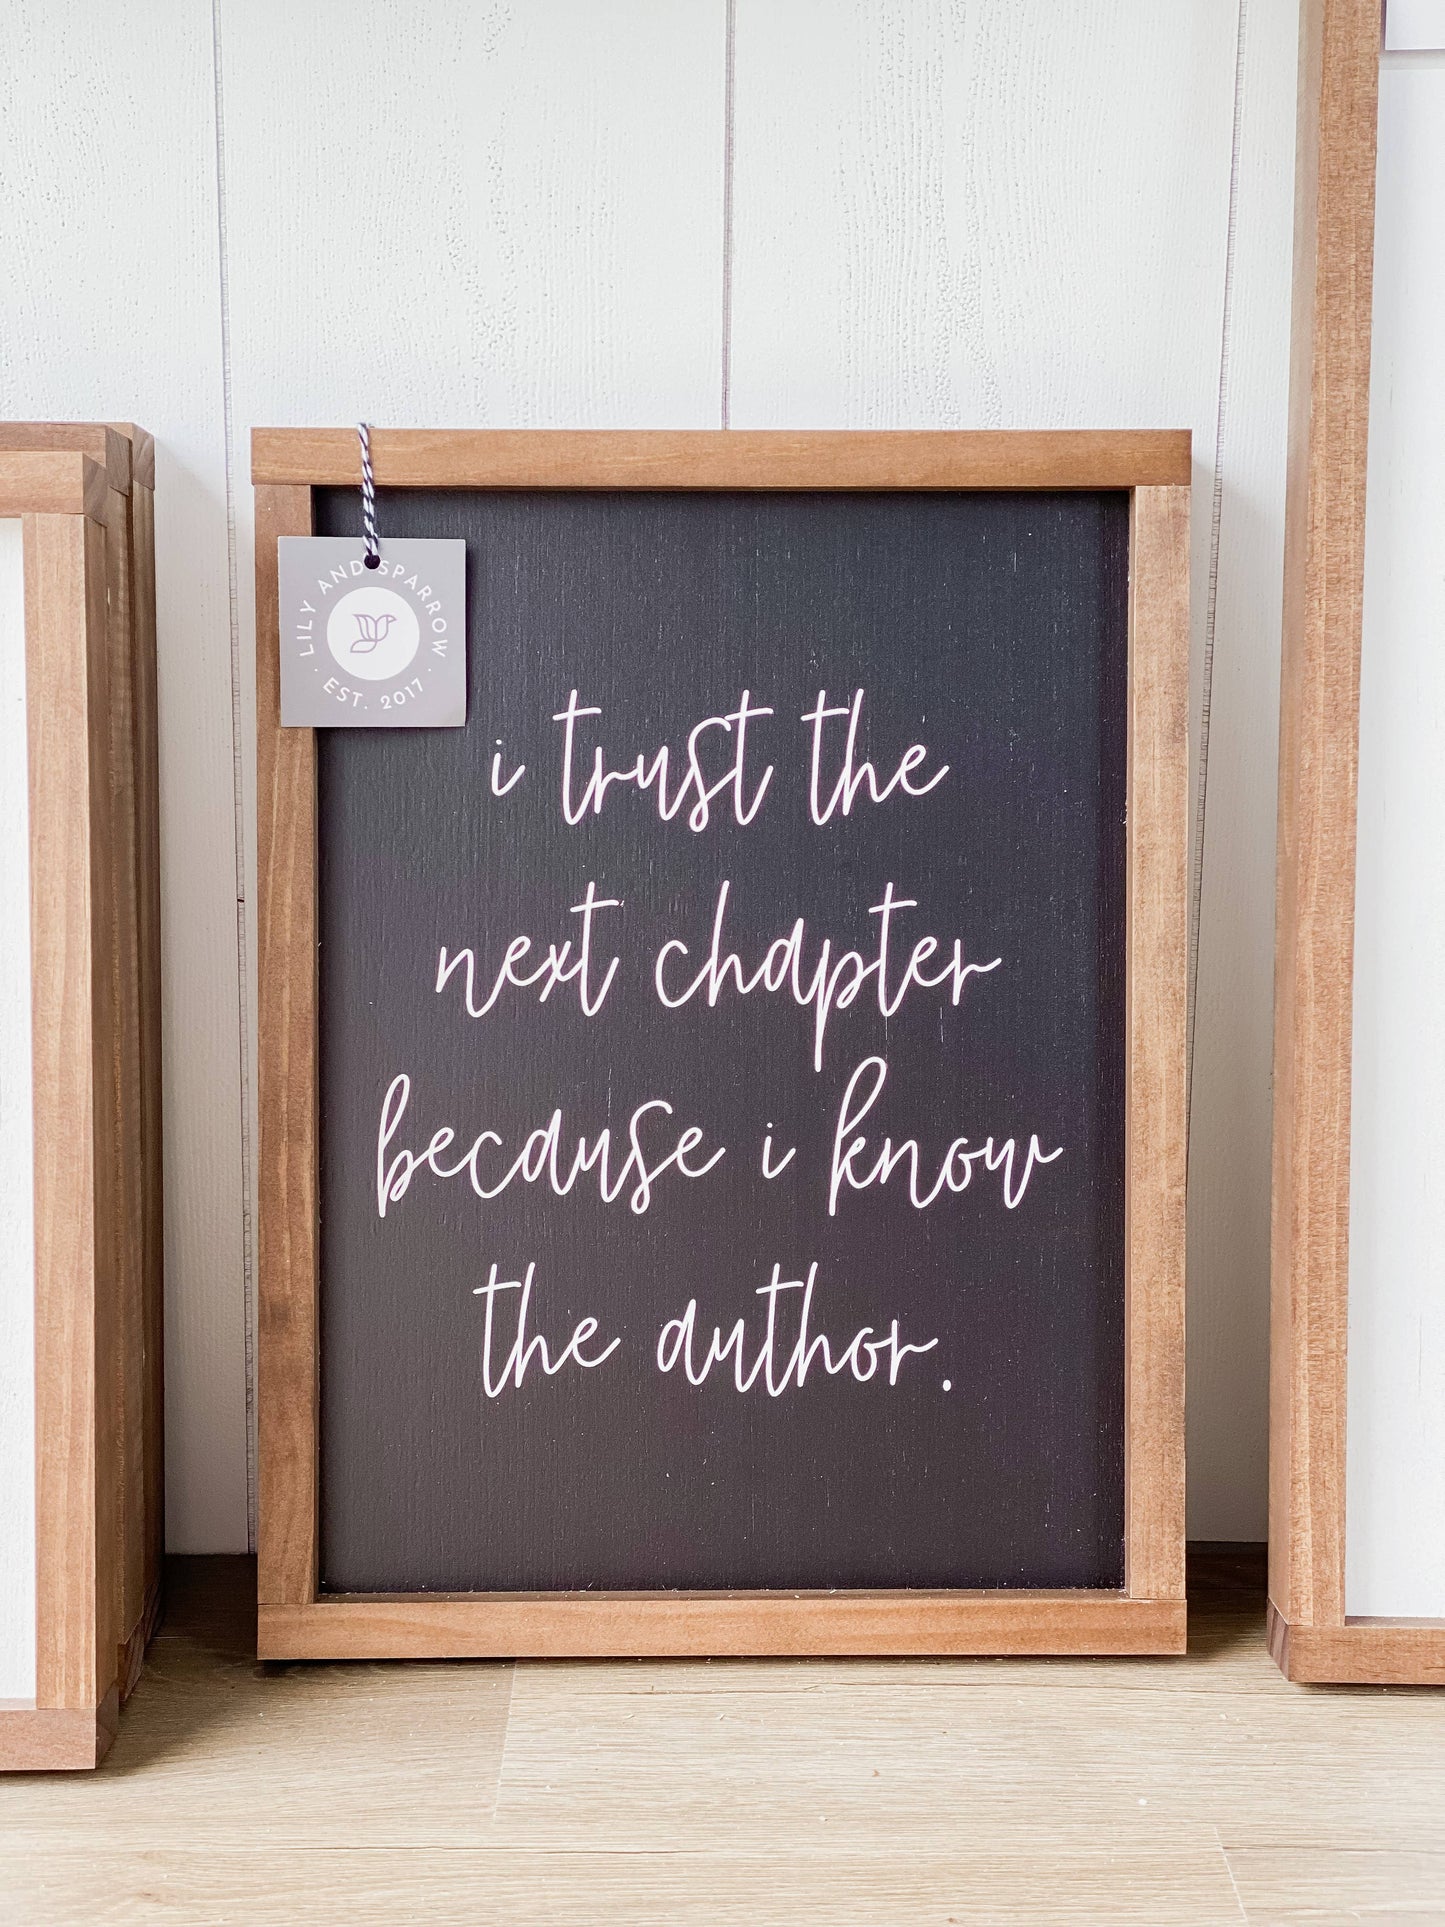 LILY AND SPARROW
· EST. 2017 ·
i trust the
next chapter
because i know
the author.